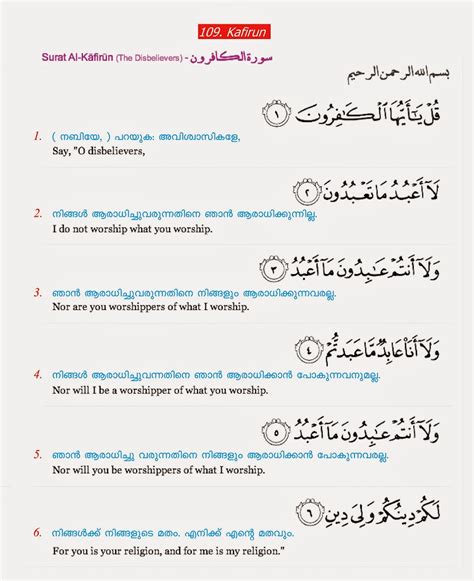 109. Kafirun
Surat Al-Kāfirūn (The Disbelievers) - سورة الكافرون
بسم الله الرحمن الرحيم
قُلْ يَٰٓأَيُّهَا ٱلْكَٰفِرُونَ ١
1. ( നബിയേ, ) പറയുക: അവിശ്വാസികളേ,
Say, "O disbelievers,
لَآ أَعْبُدُ مَا تَعْبُدُونَ ٢
2. നിങ്ങള്‍ ആരാധിച്ചുവരുന്നതിനെ ഞാന്‍ ആരാധിക്കുന്നില്ല.
I do not worship what you worship.
وَلَآ أَنتُمْ عَٰبِدُونَ مَآ أَعْبُدُ ٣
3. ഞാന്‍ ആരാധിച്ചുവരുന്നതിനെ നിങ്ങളും ആരാധിക്കുന്നവരല്ല.
Nor are you worshippers of what I worship.
وَلَآ أَنَا۠ عَابِدٌ مَّا عَبَدتُّمْ ٤
4. നിങ്ങള്‍ ആരാധിച്ചുവന്നതിനെ ഞാന്‍ ആരാധിക്കാന്‍ പോകുന്നവനുമല്ല.
Nor will I be a worshipper of what you worship.
وَلَآ أَنتُمْ عَٰبِدُونَ مَآ أَعْبُدُ ٥
5. ഞാന്‍ ആരാധിച്ചു വരുന്നതിനെ നിങ്ങളും ആരാധിക്കാന്‍ പോകുന്നവരല്ല.
Nor will you be worshippers of what I worship.
لَكُمْ دِينُكُمْ وَلِىَ دِينِ ٦
6. നിങ്ങള്‍ക്ക് നിങ്ങളുടെ മതം. എനിക്ക് എന്‍റെ മതവും.
For you is your religion, and for me is my religion."